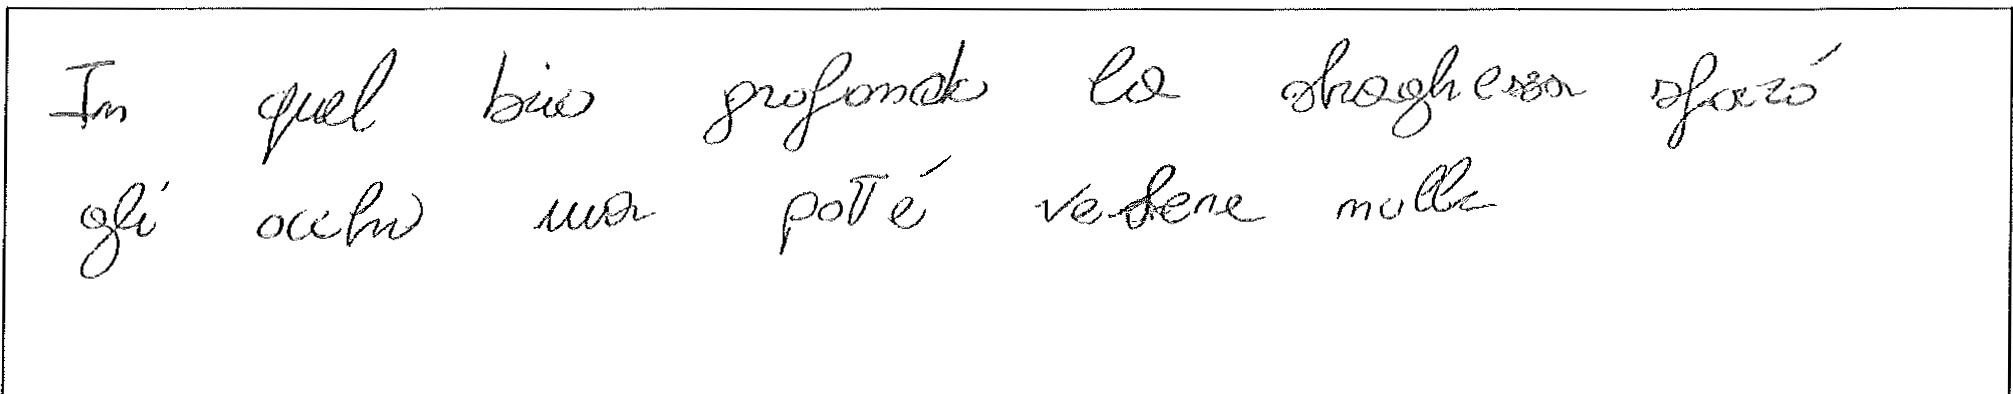 In quel buio profondo la draghessa sforzó
gli occhi ma poté vedere nulla